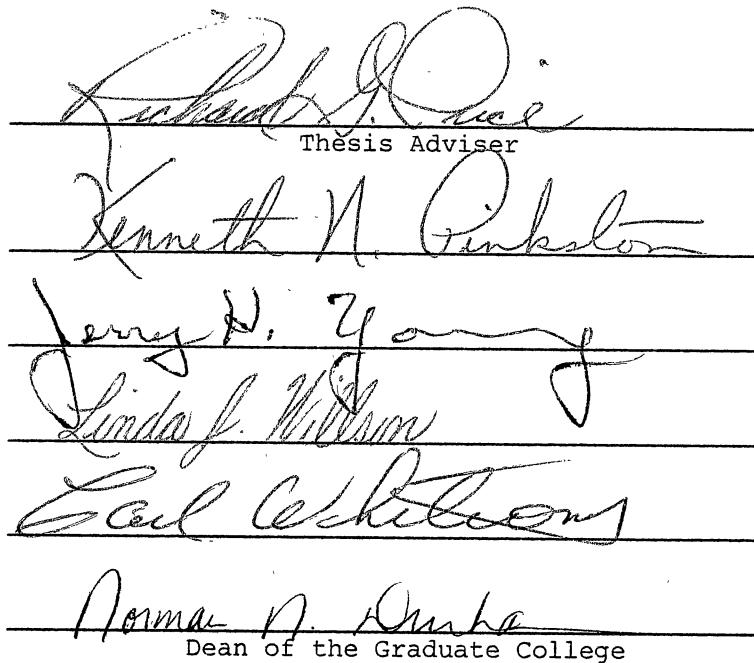 Richard G. Price
Thesis Adviser
Kenneth N. Pinkston
Jerry H. Young
Linda J. Willson
Earl
Norman N. Durham
Dean of the Graduate College